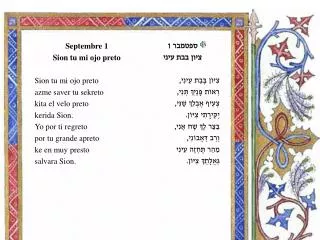 Septembre 1
Sion tu mi ojo preto
Sion tu mi ojo preto
azme saver tu sekreto
kita el velo preto
kerida Sion.
Yo por ti regreto
por tu grande apreto
ke en muy presto
salvara Sion.
ספטמבר 1
ציון בבת עיני
ציון בבת עיני,
ראות פניך תני,
צעיף אבלך שני,
יקירתי ציון.
בצר לך שח אני,
ורב דאבוני,
מהר תחזה עיני
גאלתך ציון.